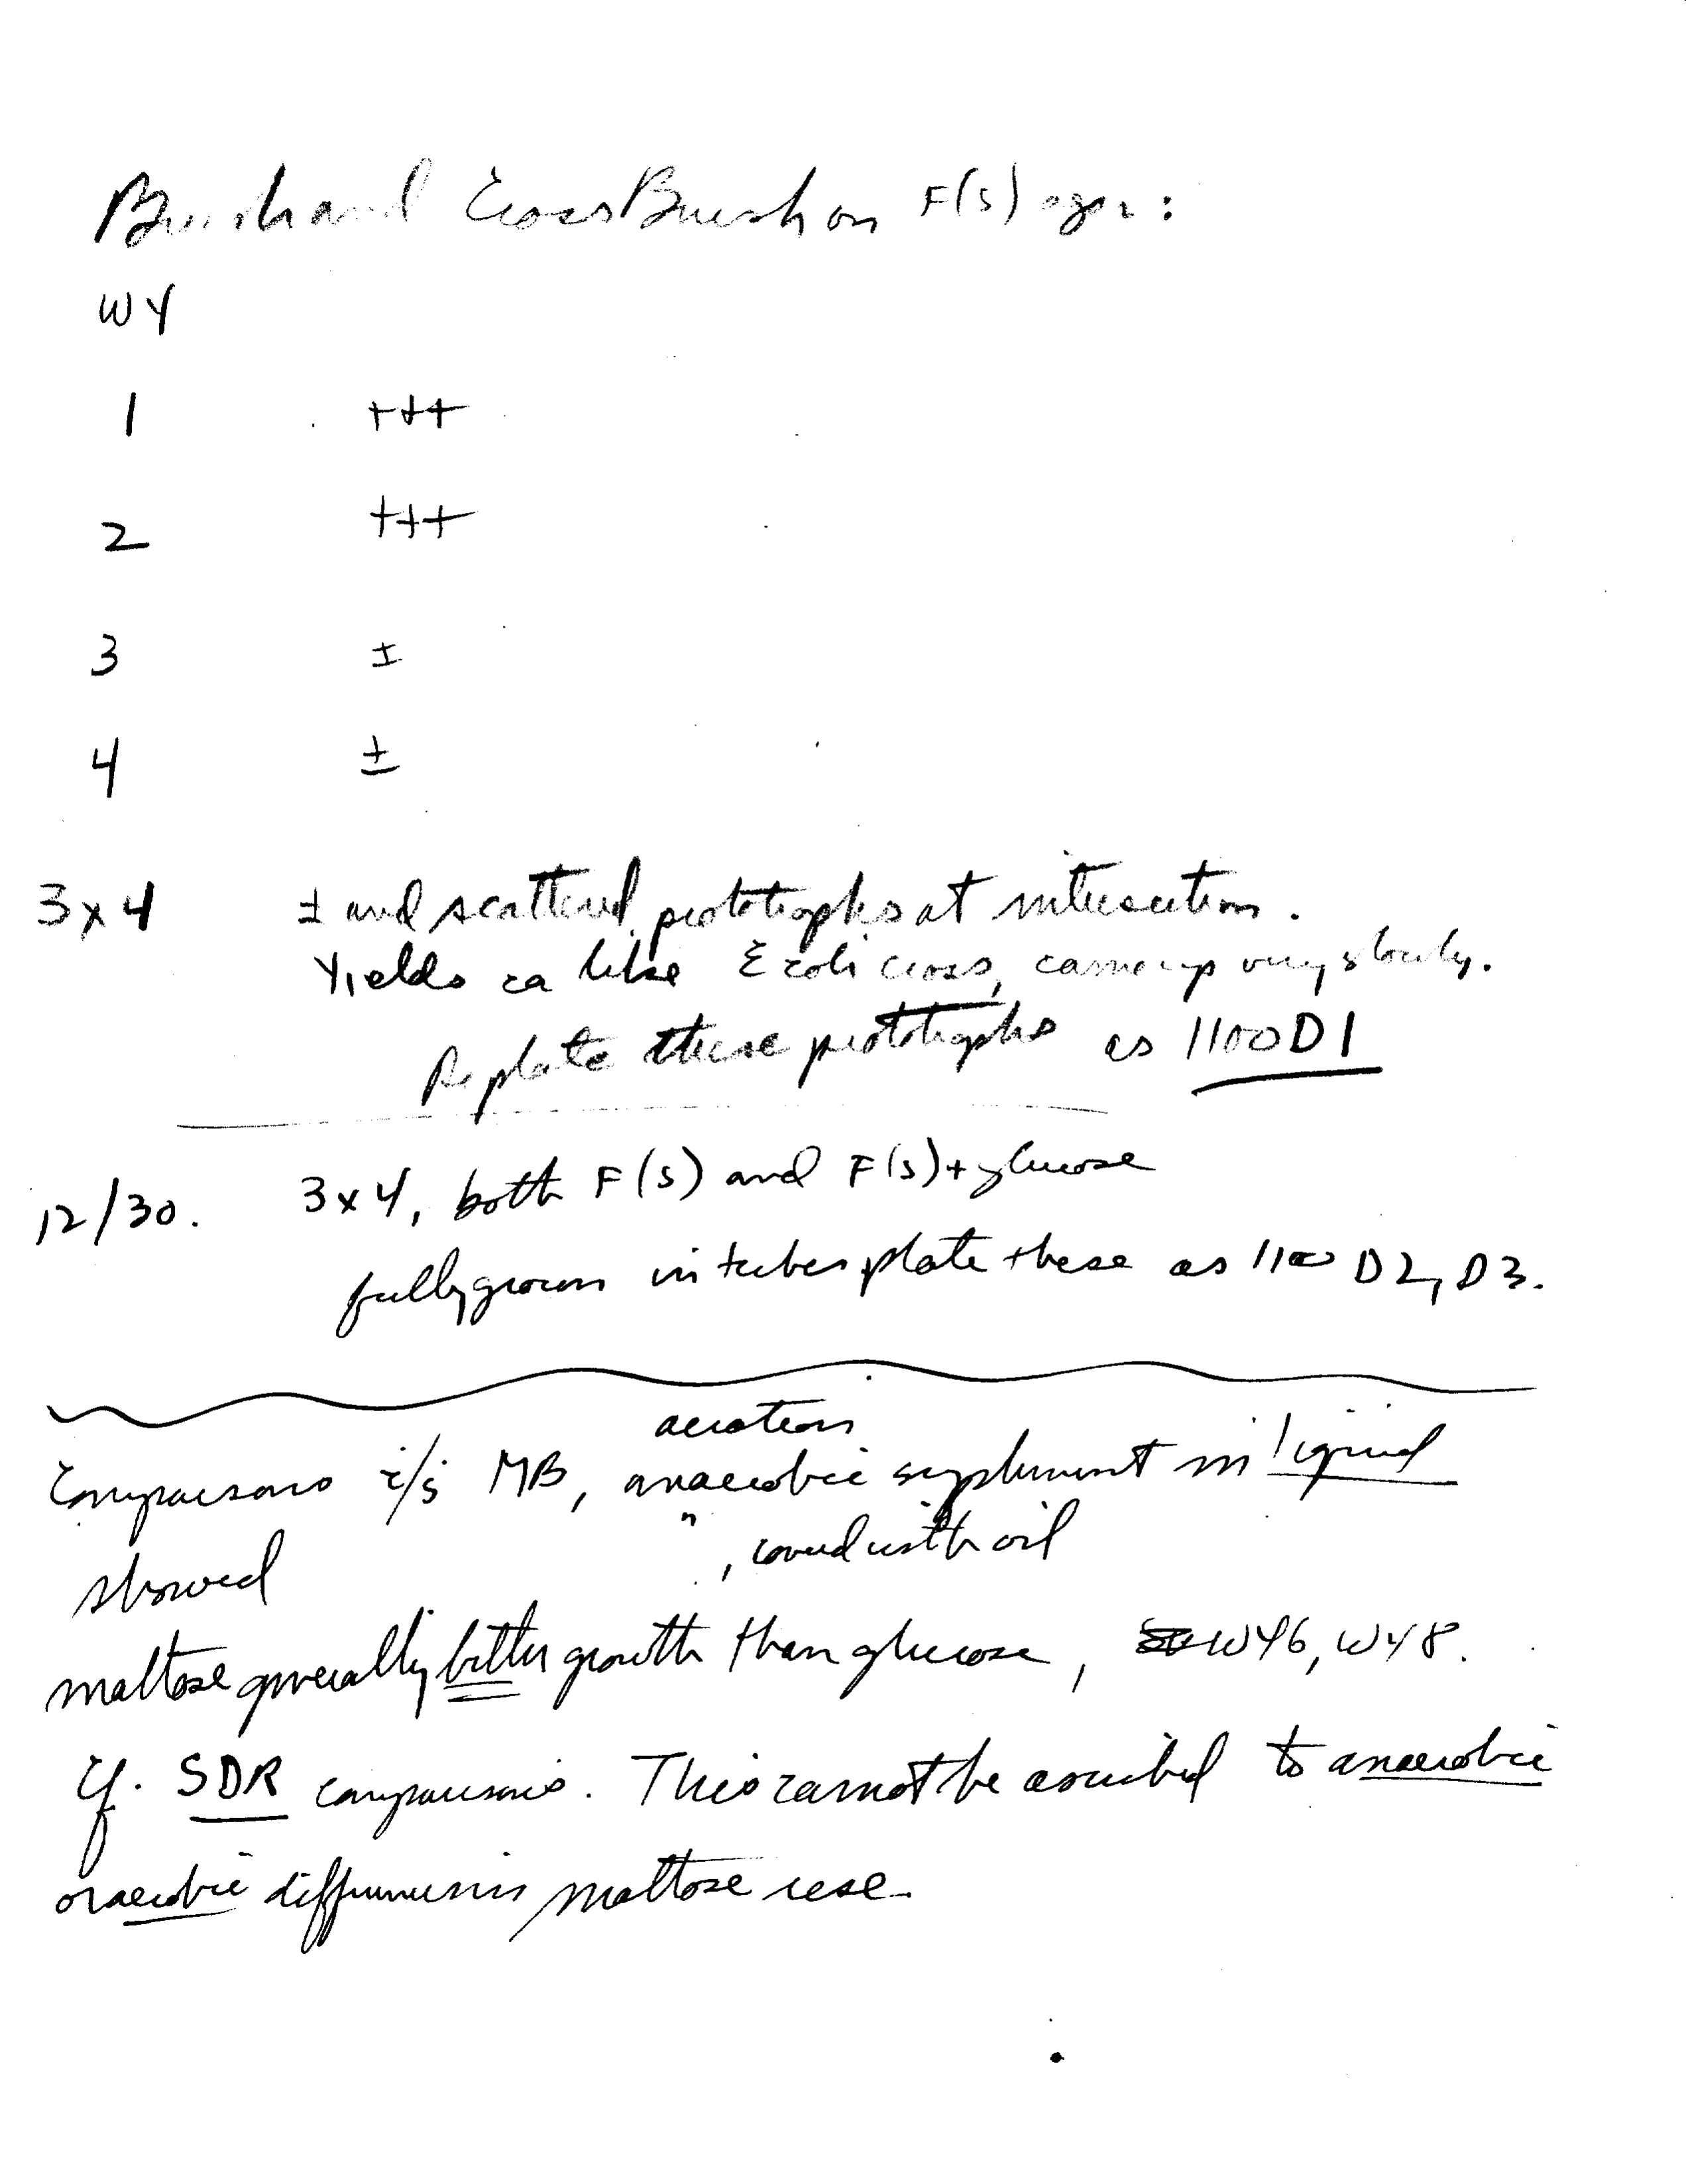 Brush and Cross Brush on F(s) agar:
WY
1 +++
2 +++
3 ±
4 ±
3x4 ± and scattered prototrophs at intersection.
Yields ca like E coli cross, came up very slowly.
Replate these prototrophs as 1100D1
12/30. 3x4, both F(s) and F(s)+glucose
fully grown in tubes plate these as 1100 D2, D3.
aeration
Comparisons MB, anaerobic supplement in liquid
showed " , covered with oil
maltose generally better growth than glucose, WY6, WY8.
Cf. SDR comparisons. This cannot be ascribed to anaerobic
or aerobic differences in maltose use.